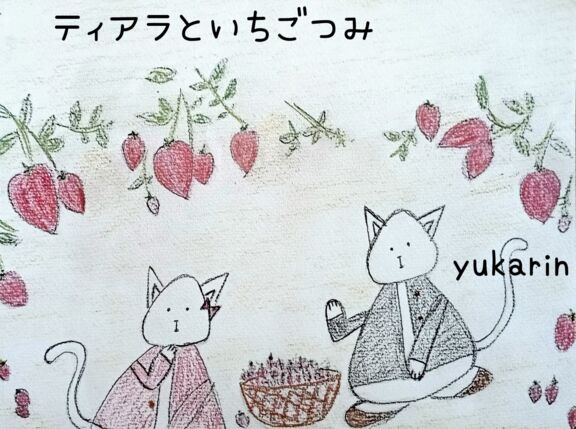 ティアラといちごつみ
yukarin